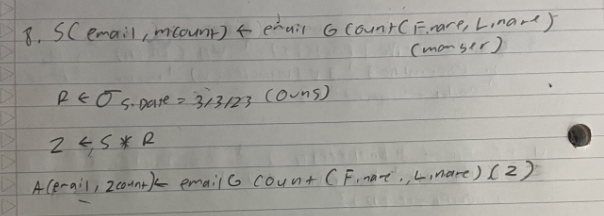 8. S(email, mcount) ← email G count(F.name, L.name)
(manger)
R ← σ S.Date = 3/3/23 (Owns)
Z ← S * R
A(email, Zcount) ← email G count (F.name., L.name) (Z)